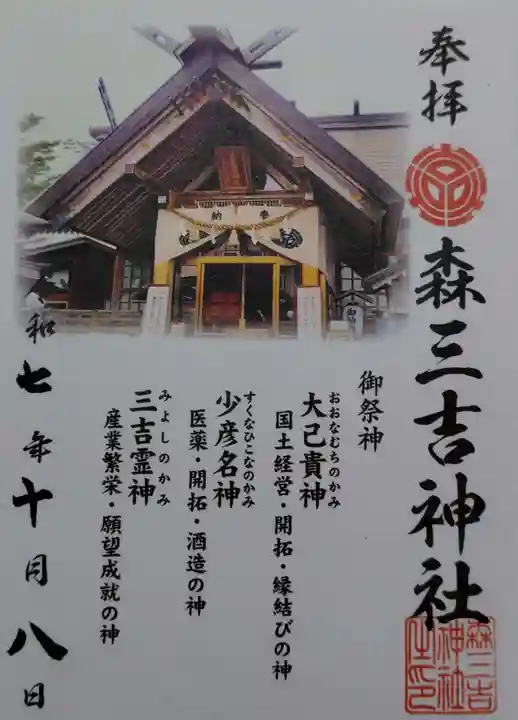 奉拝
森三吉神社
森三吉
神社
之印
御祭神
おおなむちのかみ
大己貴神
国土経営・開拓・縁結びの神
すくなひこなのかみ
少彦名神
医薬・開拓・酒造の神
みよしのかみ
三吉霊神
産業繁栄・願望成就の神
令和七年十月八日
奉
納